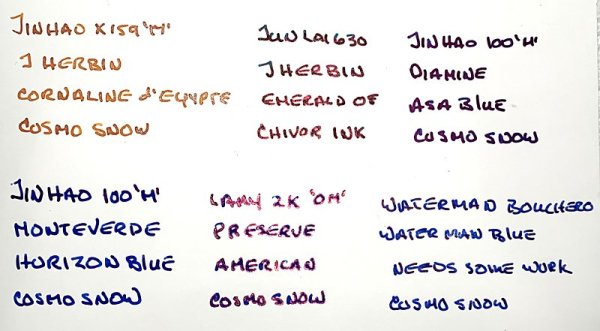 JINHAO X159 'M'
J HERBIN
CORNALINE d'EGYPTE
COSMO SNOW
JUNLAI 630
J HERBIN
EMERALD OF
CHIVOR INK
JINHAO 100 'M'
DIAMINE
ASA BLUE
COSMO SNOW
JINHAO 100 'M'
MONTEVERDE
HORIZON BLUE
COSMO SNOW
LAMY 2K 'OM'
PRESERVE
AMERICAN
COSMO SNOW
WATERMAN BOUCHERO
WATERMAN BLUE
NEEDS SOME WORK
COSMO SNOW